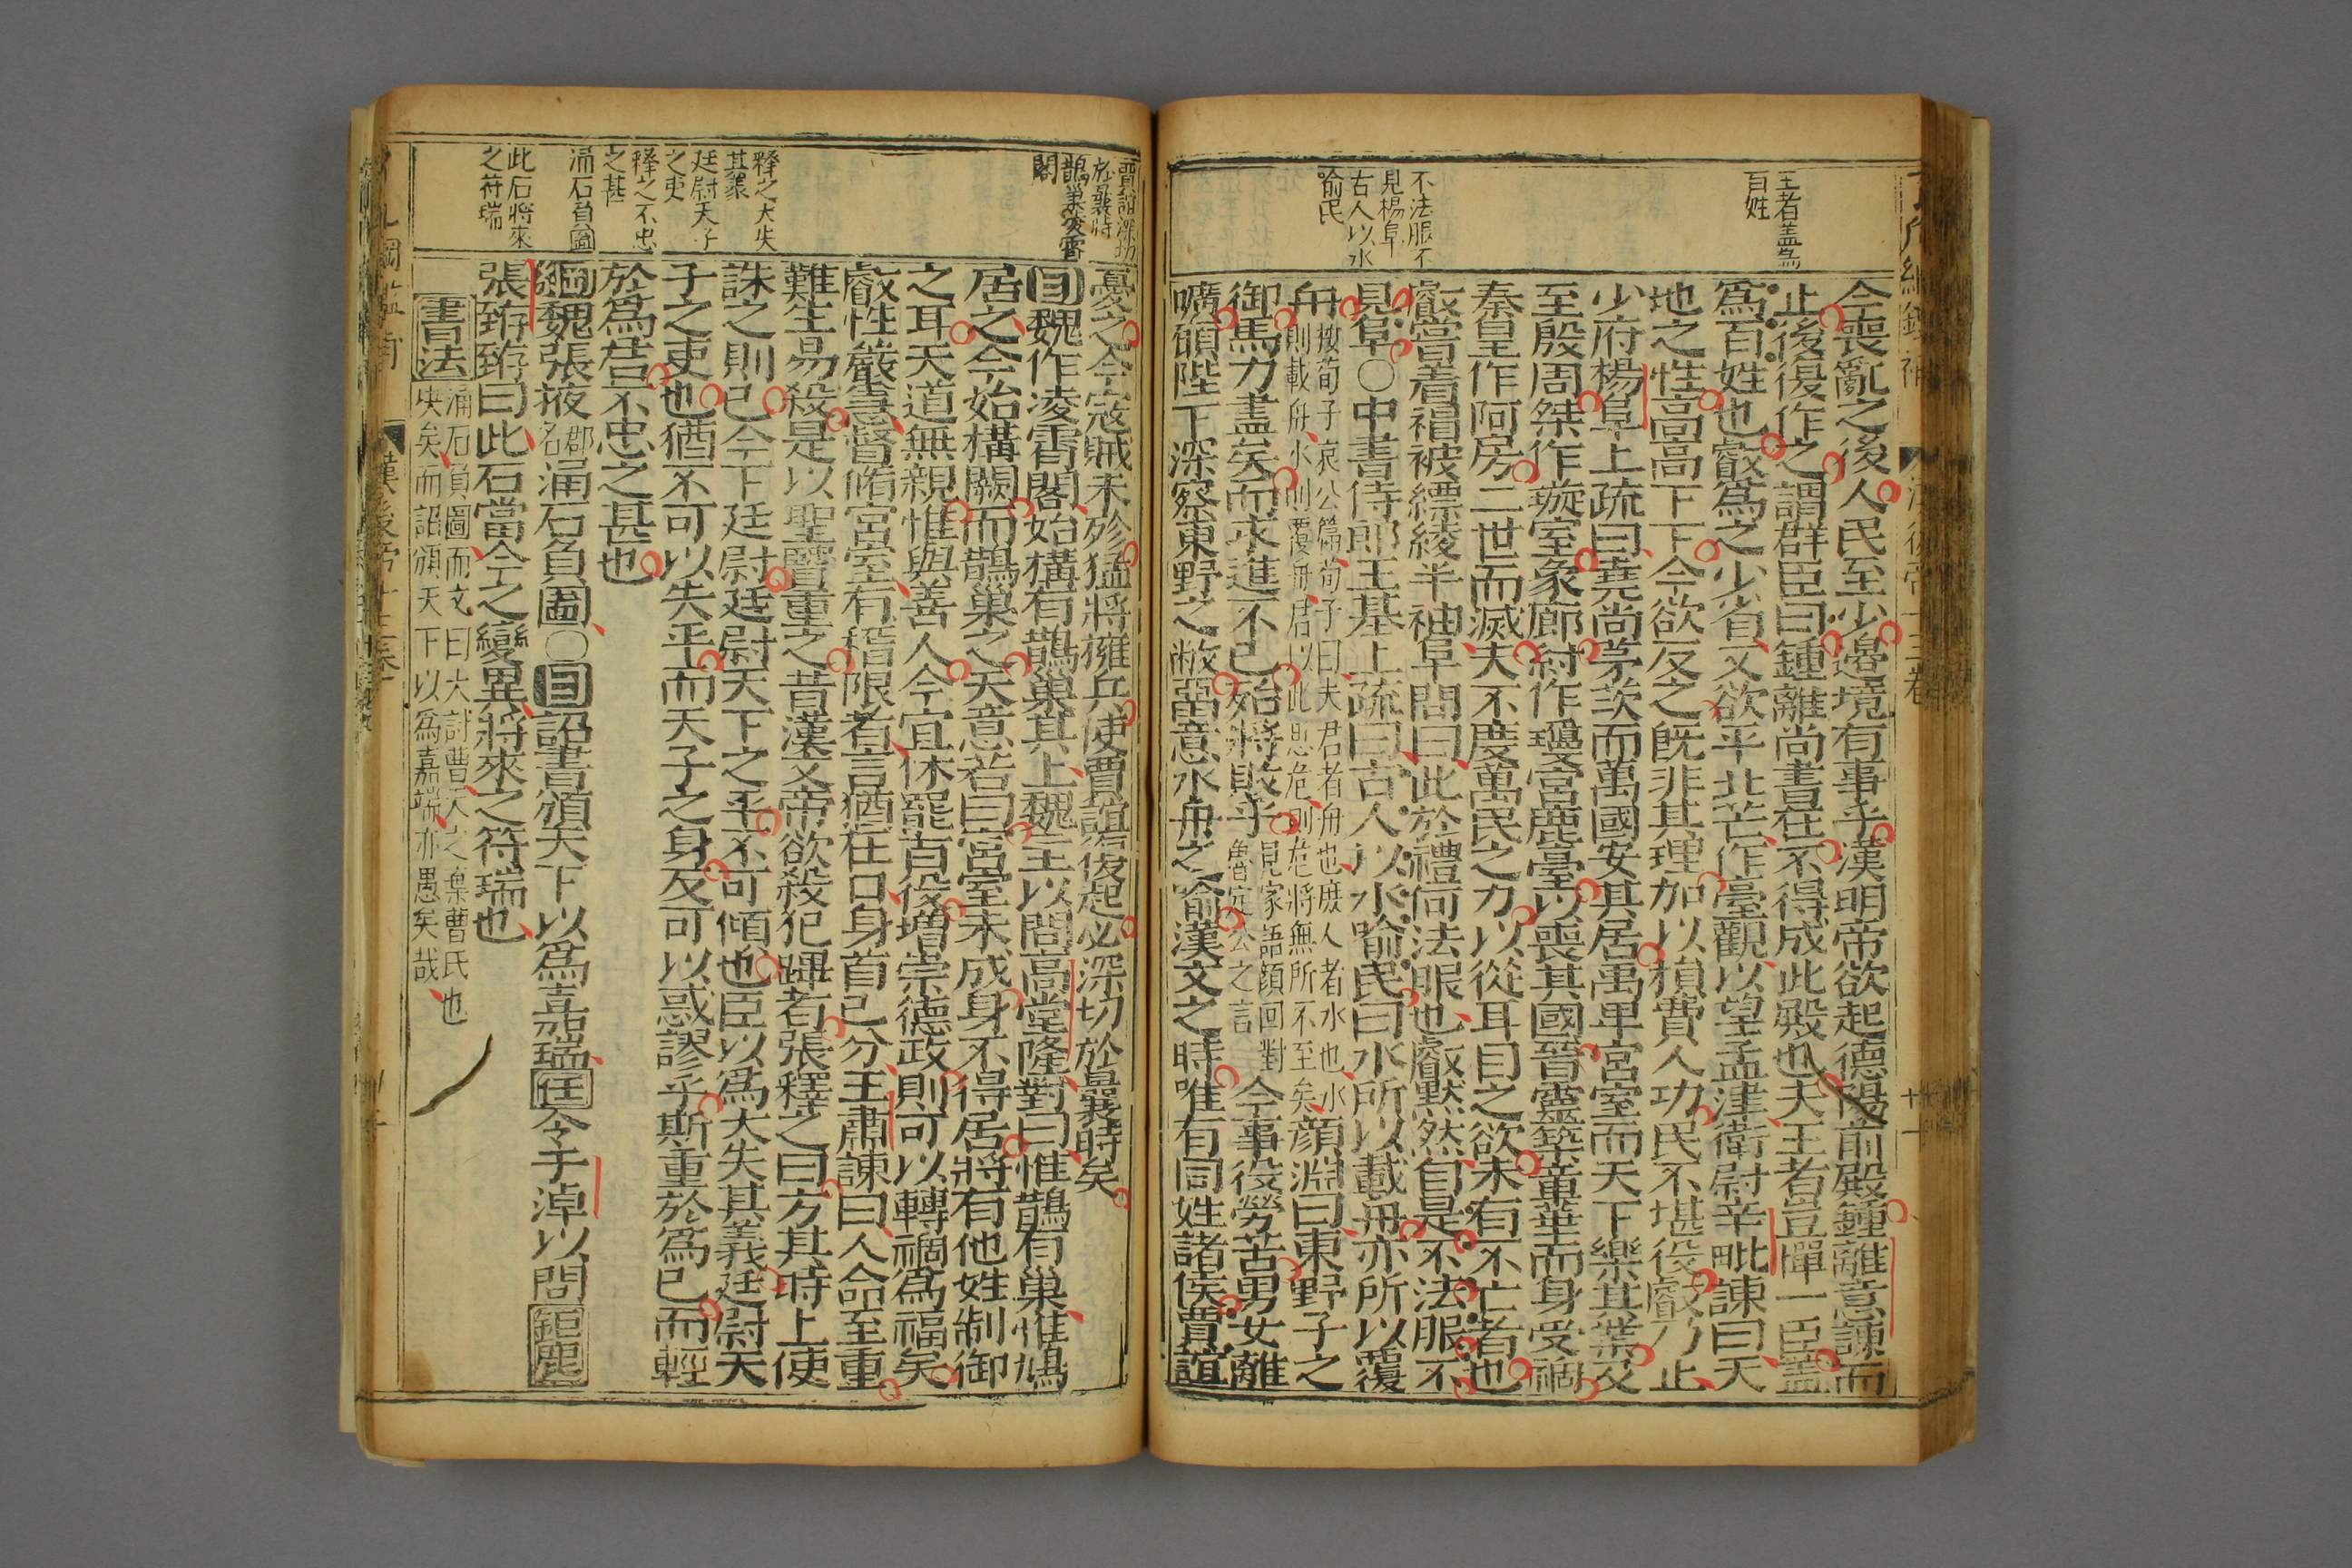 王者盖為
百姓
不法服不
見楊阜
古人以水
喻民
今喪亂之後人民至少邊境有事乎漢明帝欲起德陽前殿鍾離意諫而
止後復作之謂群臣曰鍾離尚書在不得成此殿也夫王者豈憚一臣蓋
為百姓也叡為之少省又欲平北芒作臺觀以望孟津衛尉辛毗諫曰天
地之性高高下下今欲反之既非其理加以損費人功民不堪役叡乃止
少府楊阜上疏曰堯尚茅茨而萬國安其居禹卑宮室而天下樂其業及
至殷周桀作璇室象廊紂作瓊宮鹿臺以喪其國晉靈築章華而身受禍
秦皇作阿房二世而滅夫不度萬民之力以從耳目之欲未有不亡者也
叡嘗着帽被縹綾半袖阜問曰此於禮何法服也叡默然自是不法服不
見阜〇中書侍郎王基上疏曰古人以水喻民曰水所以載舟亦所以覆
舟按荀子哀公篇荀子曰夫君者舟也庶人者水也水則載舟水則覆舟君以此思危則危將無所不至矣顏淵曰東野子之
御馬力盡矣而求進不已殆將敗乎見家語顏回對魯定公之言今事役勞苦男女離
曠願陛下深察東野之敝畱意水舟之喻漢文之時唯有同姓諸侯賈誼
賈誼深切
於曩時
鵲巢凌霄
閣
釋之大失
其義
廷尉天子
之吏
釋之不忠
之甚
涌石負圖
此石將來
之符瑞
憂之今寇賊未殄猛將擁兵使賈誼復起必深切於曩時矣
目魏作凌霄閣始構有鵲巢其上魏主以問高堂隆對曰惟鵲有巢惟鳩
居之今始構闕而鵲巢之天意若曰宮室未成身不得居將有他姓制御
之耳天道無親惟與善人今宜休罷百役增崇德政則可以轉禍為福矣
叡性嚴急督脩宮室有稽限者言猶在口身首已分王肅諫曰人命至重
難生易殺是以聖賢重之昔漢文帝欲殺犯蹕者張釋之曰方其時上使
誅之則已今下廷尉廷尉天下之平不可傾也臣以為大失其義廷尉天
子之吏也猶不可以失平而天子之身反可以惑謬乎斯重於為己而輕
於為君不忠之甚也
綱魏張掖郡名涌石負圖〇目詔書頒天下以為嘉瑞任令于淖以問鉅鹿
張臶臶曰此石當今之變異將來之符瑞也
書法涌石負圖而文曰大討曹天之棄曹氏也決矣而詔頒天下以為嘉瑞亦愚矣哉
漢後帝十三卷